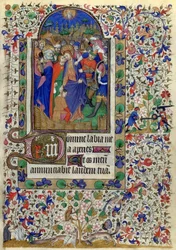 Domine labia me
a aperies
Et os meū
annunciabit laudem tuā.